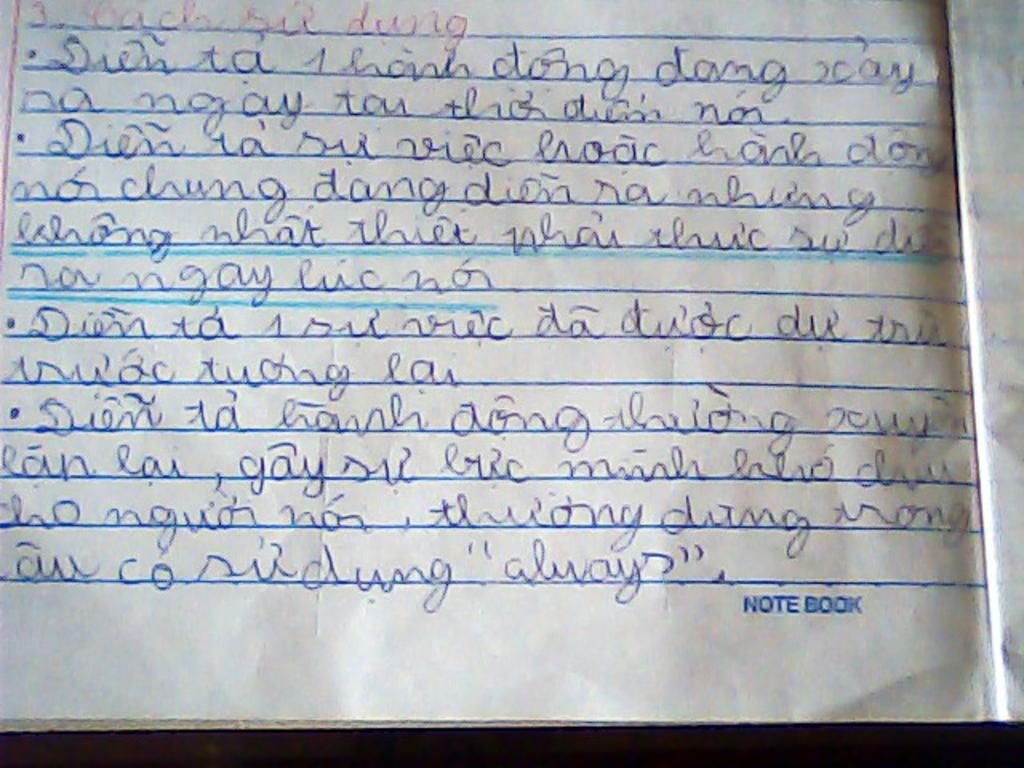 3. Cách sử dụng
• Diễn tả 1 hành động đang xảy
ra ngay tại thời điểm nói.
• Diễn tả sự việc hoặc hành độn
nói chung đang diễn ra nhưng
không nhất thiết phải thực sự
ra ngay lúc nói
• Diễn tả 1 sự việc đã được dự
trước tương lai
• Diễn tả hành động thường
lặp lại, gây sự bực mình khó
người nói, thường dùng trong
có sử dụng "always".
NOTE BOOK